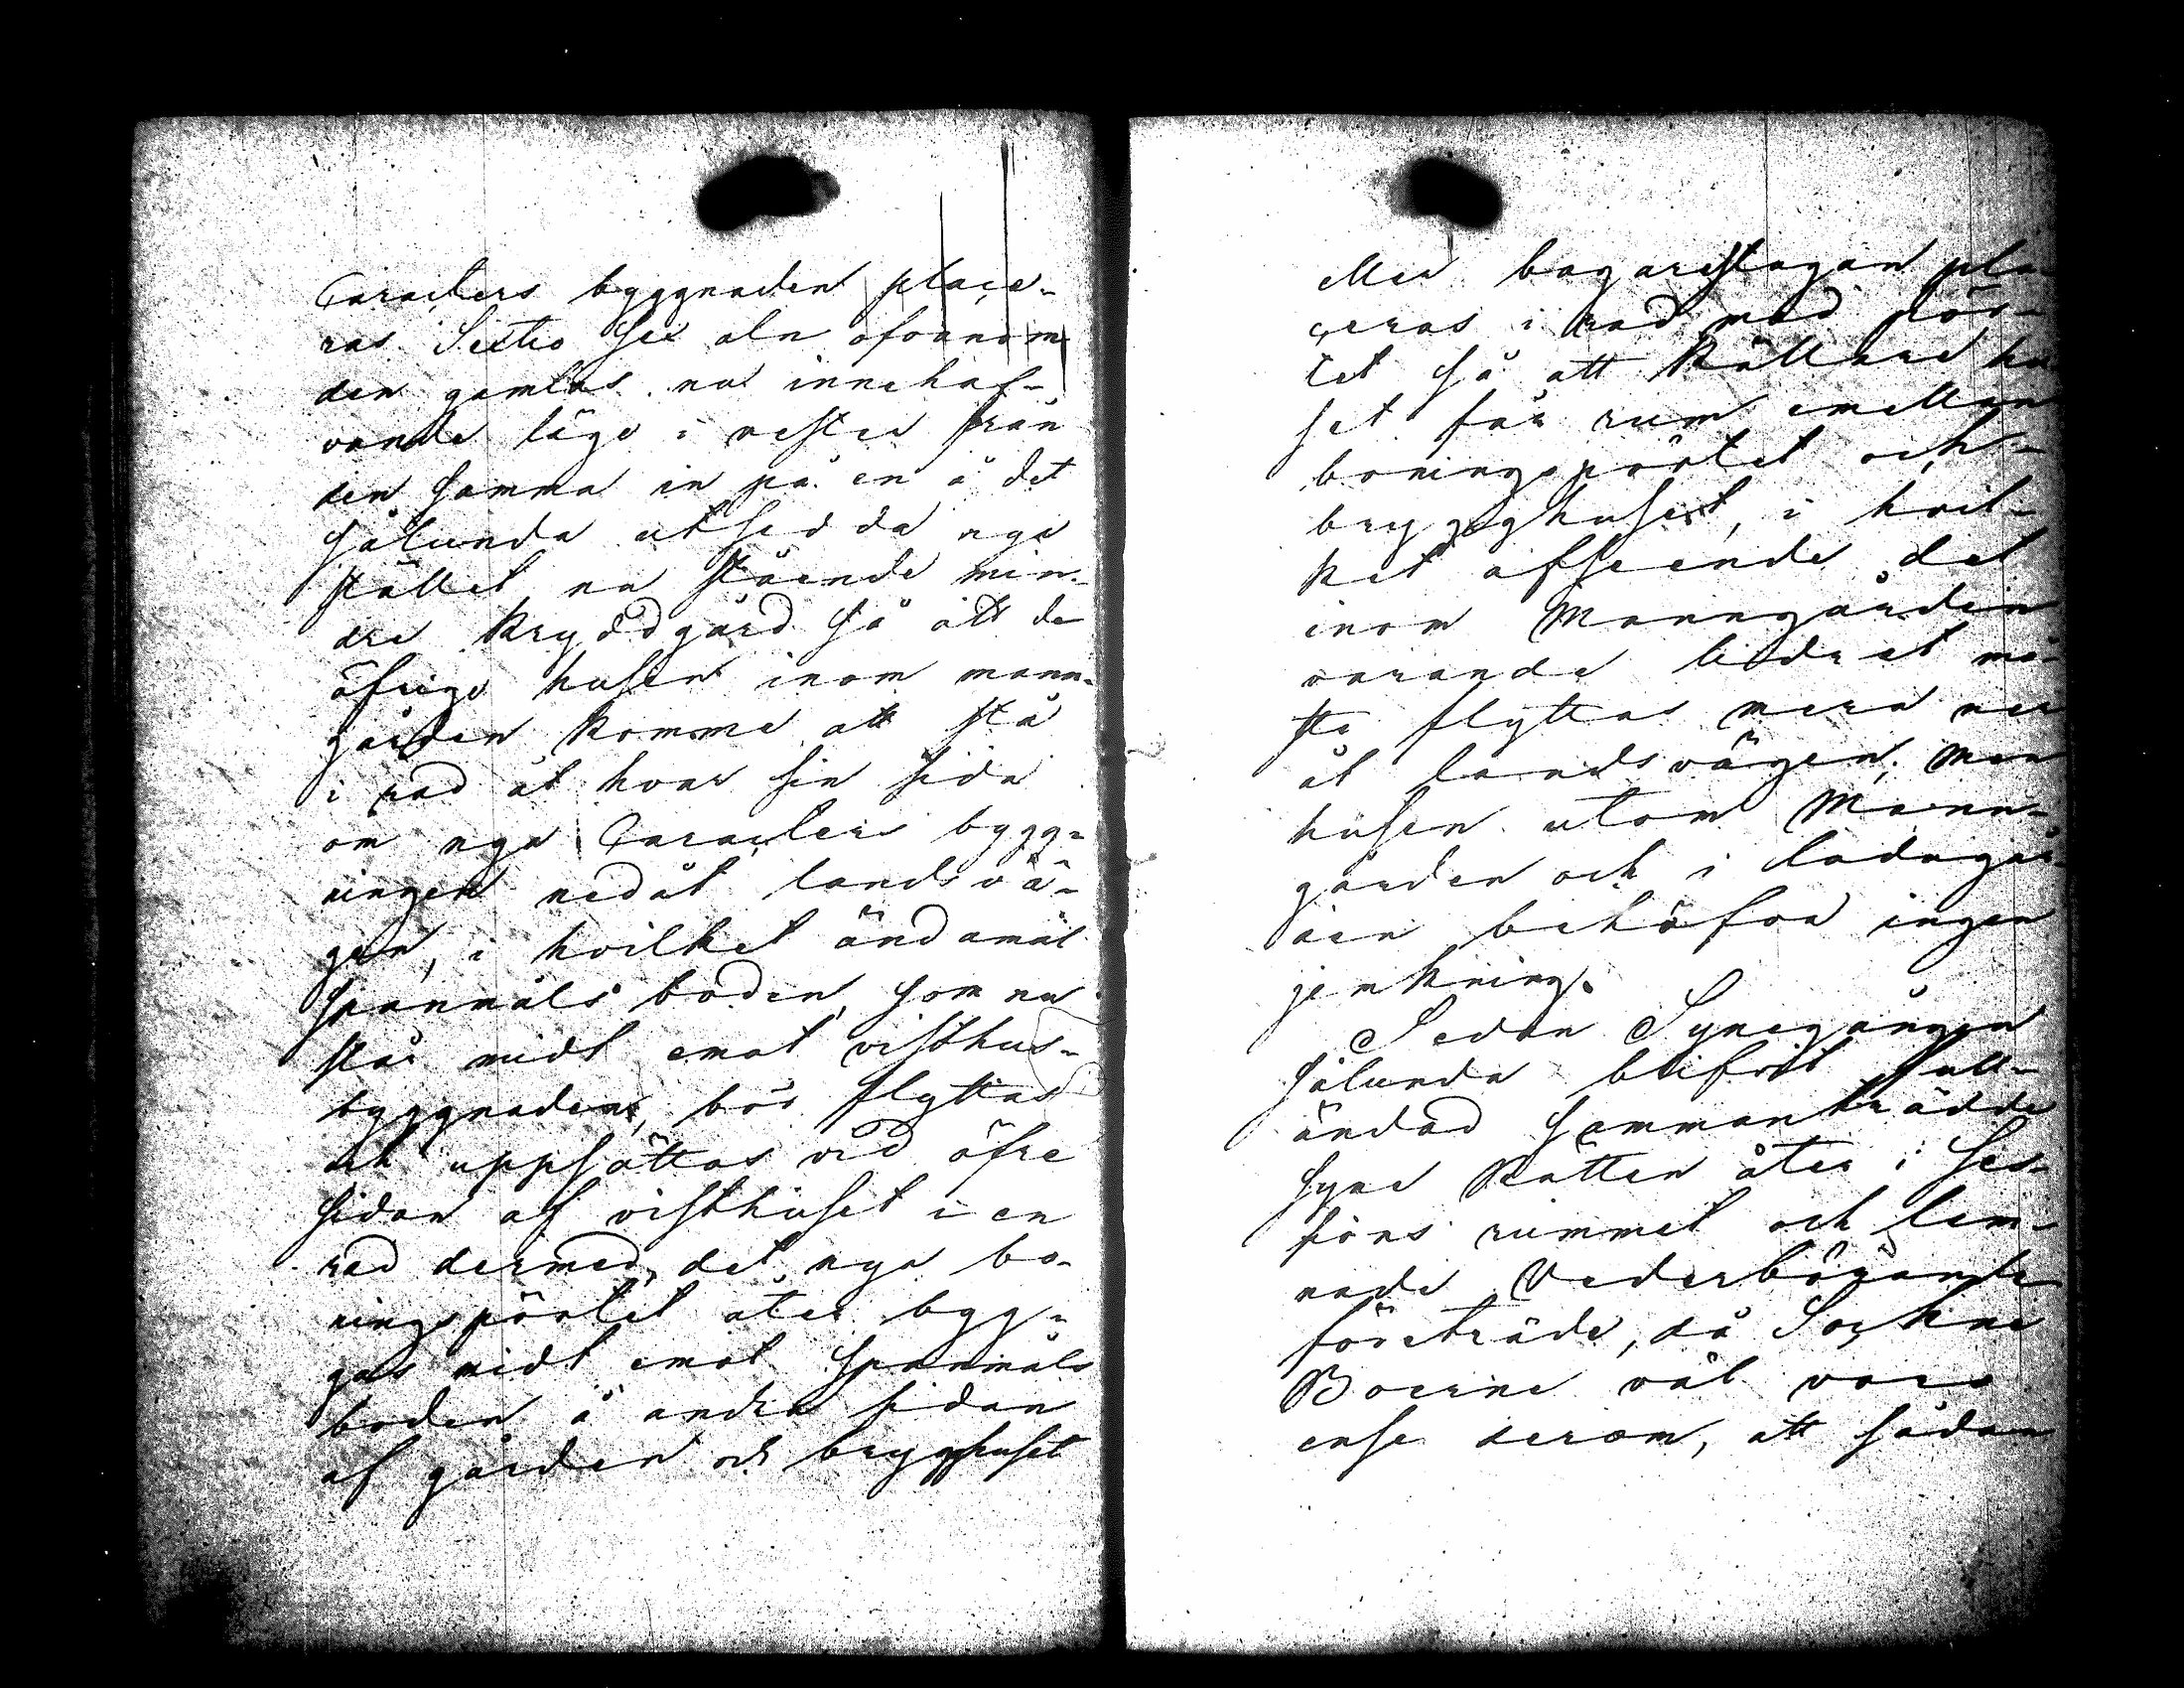 Caracters byggnaden place-
ras Sextio sex aln ofvanom
den gamlas nu innehaf-
vande läge i vester från
den samma in på en å det
sålunda utsedda nya
stället nu stående min-
dre Kryddgård så att de
öfrige husen inom mann-
gården komme att stå
i rad åt hvar sin sida
om nya Caracters bygg-
ningen nedåt landsvä-
gen, i hvilket ändamål
spanmåls boden, som nu
står midt emot visthus-
byggnaden, bör flyttas
och uppsättas vid öfre
sidan af visthuset i en
rad dermed, det nya bo-
ningspörtet åter byg-
gas midt emot spanmåls
boden å andra sidan
af gården och brygghuset
eller bagarstugan pla-
ceras i rad med pör-
tet så att Källare hu
set får rum emellan
boningspörtet och
brygghuset, i hvil-
ket afseende det
inom Manngården
varande lidret må-
ste flyttas mera ner
åt landsvägen; men
husen utom Mann-
gården och i ladugår-
den behöfva ingen
jemkning.
Sedan Synegången
sålunda blifvit full-
ändad sammanträdde
Syne Rätten åter i Ses-
sions rummet och lem-
nade Vederbörande
företräde, då Sockne
Boerne väl voro
ense derom, att sådan